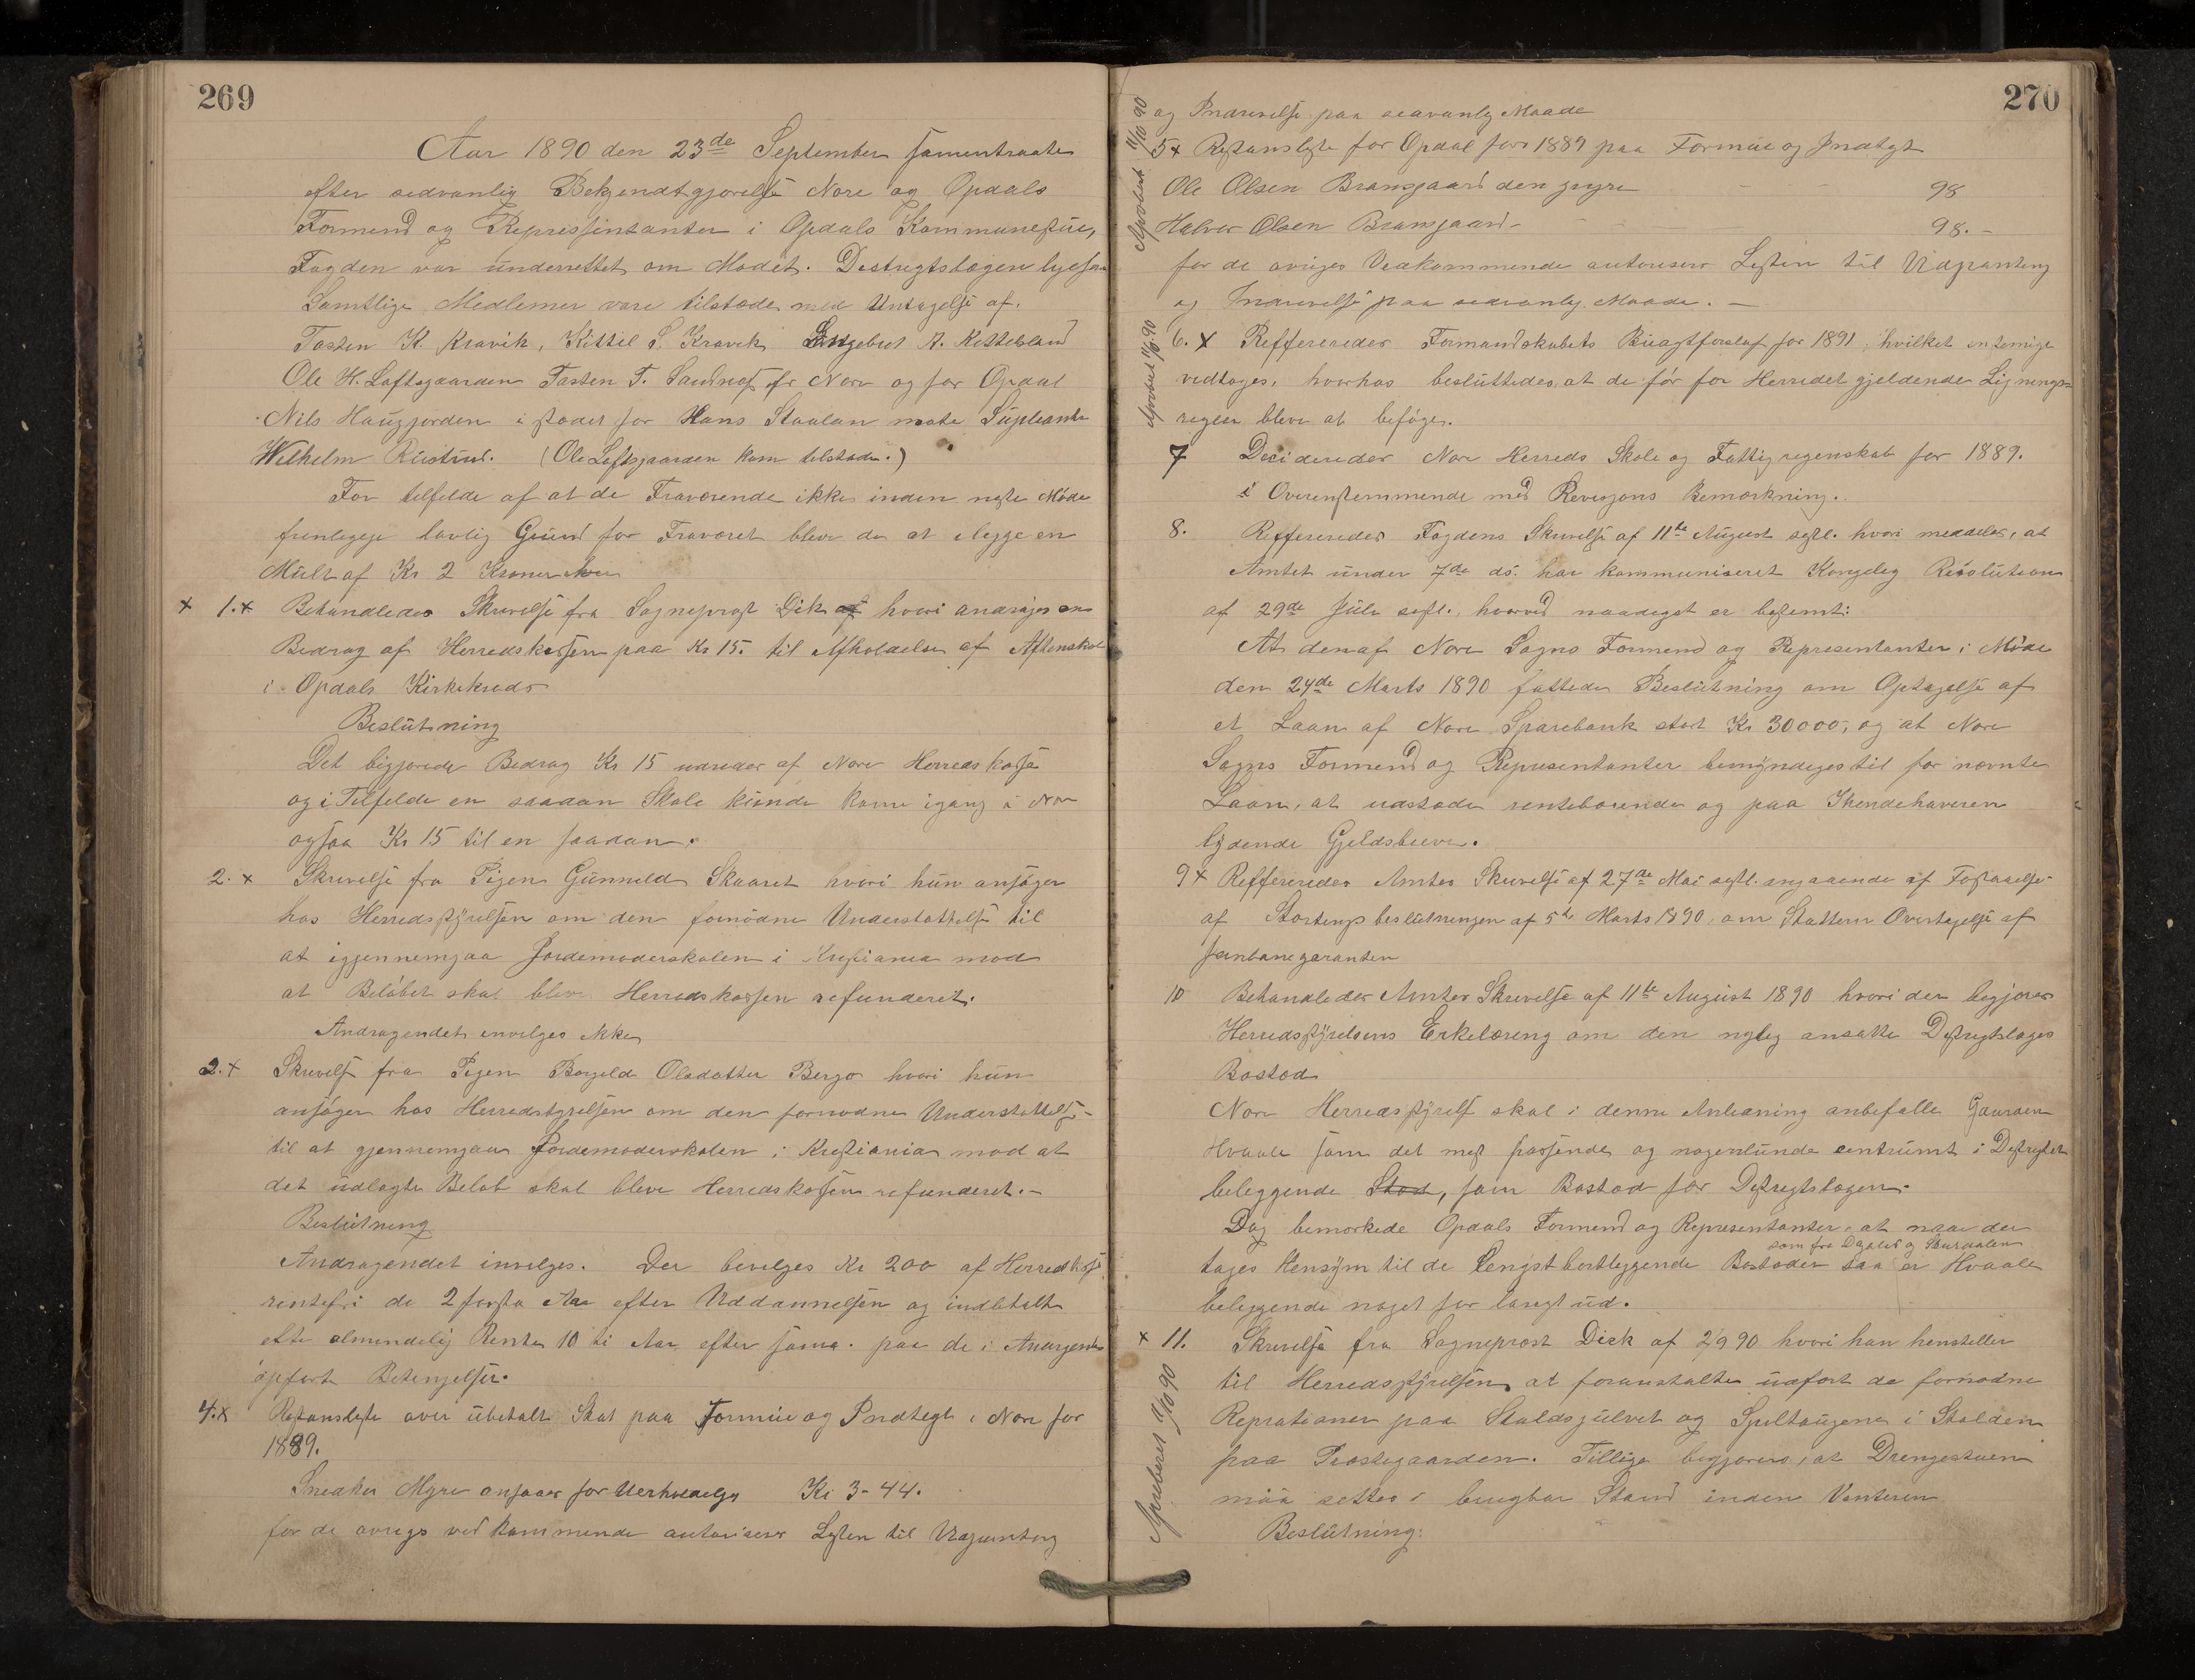 269
Aar 1890 den 23de September samentraate
efter sedvanlig Bekjendtgjørelse Nore og Opdals
Formend og Repressintanter i Opdals Kommunestue,
Fogden var underrettet om Mødet. Destrigtslægen
Samtlige Medlemer vare tilstæde med Untagelse af.
Tosten K. Kravik, Kittil S. Kravik Engebret A. Kittelsland
Ole H. Loftsgaarden Tosten T. Sandnes fr Nore og for Opdal
Nils Haugjorden i stædet for Hans Staalan møte Supleant
Wilhelm Rustud. (Ole Loftsgaarden kom tilstæde.)
For telfelde af at de Fraværende ikke inden neste Møde
fremlegge lovlig Grund for Fraværet bleve de at ilegge en
Mult af Kr 2 Kroner hver
x 1.x Behandledes Skrivelse fra Sogneprest Dick af hvori andrages om
Bedrag af Herredskassen paa Kr 15. til Afholdelse af Aftenskol
i Opdals Kirkekreds
Beslutning
Det begjærede Bedrag Kr 15 udredes af Nore Herreds kasse
og i Telfelde en saadan Skole kunde komme igang i Nore
ogsaa Kr 15 til en saadan.
2. x Skrivelse fra Pigen Gunneld Skaaret hvori hun ansøger
hos Herredstyrelsen om den fornødne Understøttelse til
at igjennemgaa Jordemoderskolen i Kristiania mod
at Beløbet skal blive Herredskassen refunderet.
Andragendet invelges ikke
3.x Skrivelse fra Pigen Borgeld Olsdatter Bergo hvori hun
ansøger hos Herredstyrelsen om den fornødne Understøttelse
til at gjennemgaa Jordemoderskolen i Kristiania mod at
det udlagte Beløb skal bleve Herredskassen refunderet.-
Beslutning
Andragendet invelges. Der bevelges Kr 200 af Herredskasse
rentefri de 2 første Aar efter Uddannelsen og indbetalt
efter almindelig Rente 10 ti Aar efter samme. paa de i Andragendet
opførte Betingelser.
4.x Restanseliste over ubetalt Skat paa Formue og Indtegt i Nore for
1889.
Myre ansaaes for Uerholdelig Kr 3-44.
for de øvrige vedkommende autoriseres Listen til Udpantning
270
og Inddrivelse paa sedvanlig Maade
5x Restanseliste for Opdal for 1889 paa Formue og Indtegt
Ole Olsen Bransgaard den yngre - - - 98
Halvor Olsen Bransgaard - 98.-
for de øvriges Vedkommende autoriseres Listen til Udpantning
og Inddrivelse paa sedvanlig Maade. -
Aprobert 11/10 90
6. x Reffereredes Formandskabets Budgtforslag for 1891 hvilket enstemige
vedtoges, hvorhos besluttedes at de før for Herredet gjeldende Ligningsregler
bleve at beføge.
Aprobert 11/10 90
7 Decideredes Nore Herreds Skole og Fattigregenskab for 1889.
i Overenstemmende med Revisjons Bemærkning.
8. Reffereredes Fogdens Skrivelse af 11te August sestl. hvori meddeles, at
Amtet under 7de ds. har kommuniseret Kongelig Resolution
af 29de Juli sestl., hvorved naadigst er bestemt:
At den af Nore Sogns Formend og Representanter i Møde
den 24de Marts 1890 fattede Beslutning om Optagelse af
et Laan af Nore Sparebank stort Kr 30000, og at Nore
Sogns Formend og Representanter bemyndiges til for nevnte
Laan, at udstæde rentebærende og paa Ihendehaveren
lydende Gjeldsbreve.
9x Reffereredes Amtes Skrivelse af 27de Mai sestl. angaaende
af Stortings beslutningen af 5te Marts 1890, om Stattens Overtagelse af
Jernbanegaranten
10 Behandledes Amtes Skrivelse af 11te August 1890 hvori der begjæres
Herredstyrelsens Erkelæring om den nylig ansatte Destrigtslæges
Bosted
Nore Herredstyrelse skal i denne Anledning anbefalle Gaarden
Hvaale som det mest passende og nogenlunde centrumt i Destrigtet
beleggende Sted, som Bosted for Destrigtslægen.
Dog bemerkede Opdals Formend og Representanter, at naar der
tages Hensyn til de lengst bortleggende Bosteder som fra Dagalid og Skurdalen saa er Hvaale
beleggende noget for langt ud.
x 11. Skrivelse fra Sogneprest Dick af 2/9 90 hvori han henstiller
til Herredstyrelsen at foranstalte udført de fornødne
Reprationer paa Staldsgulvet og Spiltaugene i Stalden
paa Prestegaarden. Tillige begjæres, at Drengestuen
maa settes i brugbar Stand inden Vinteren
Beslutning:
Aprobert 11/10 90